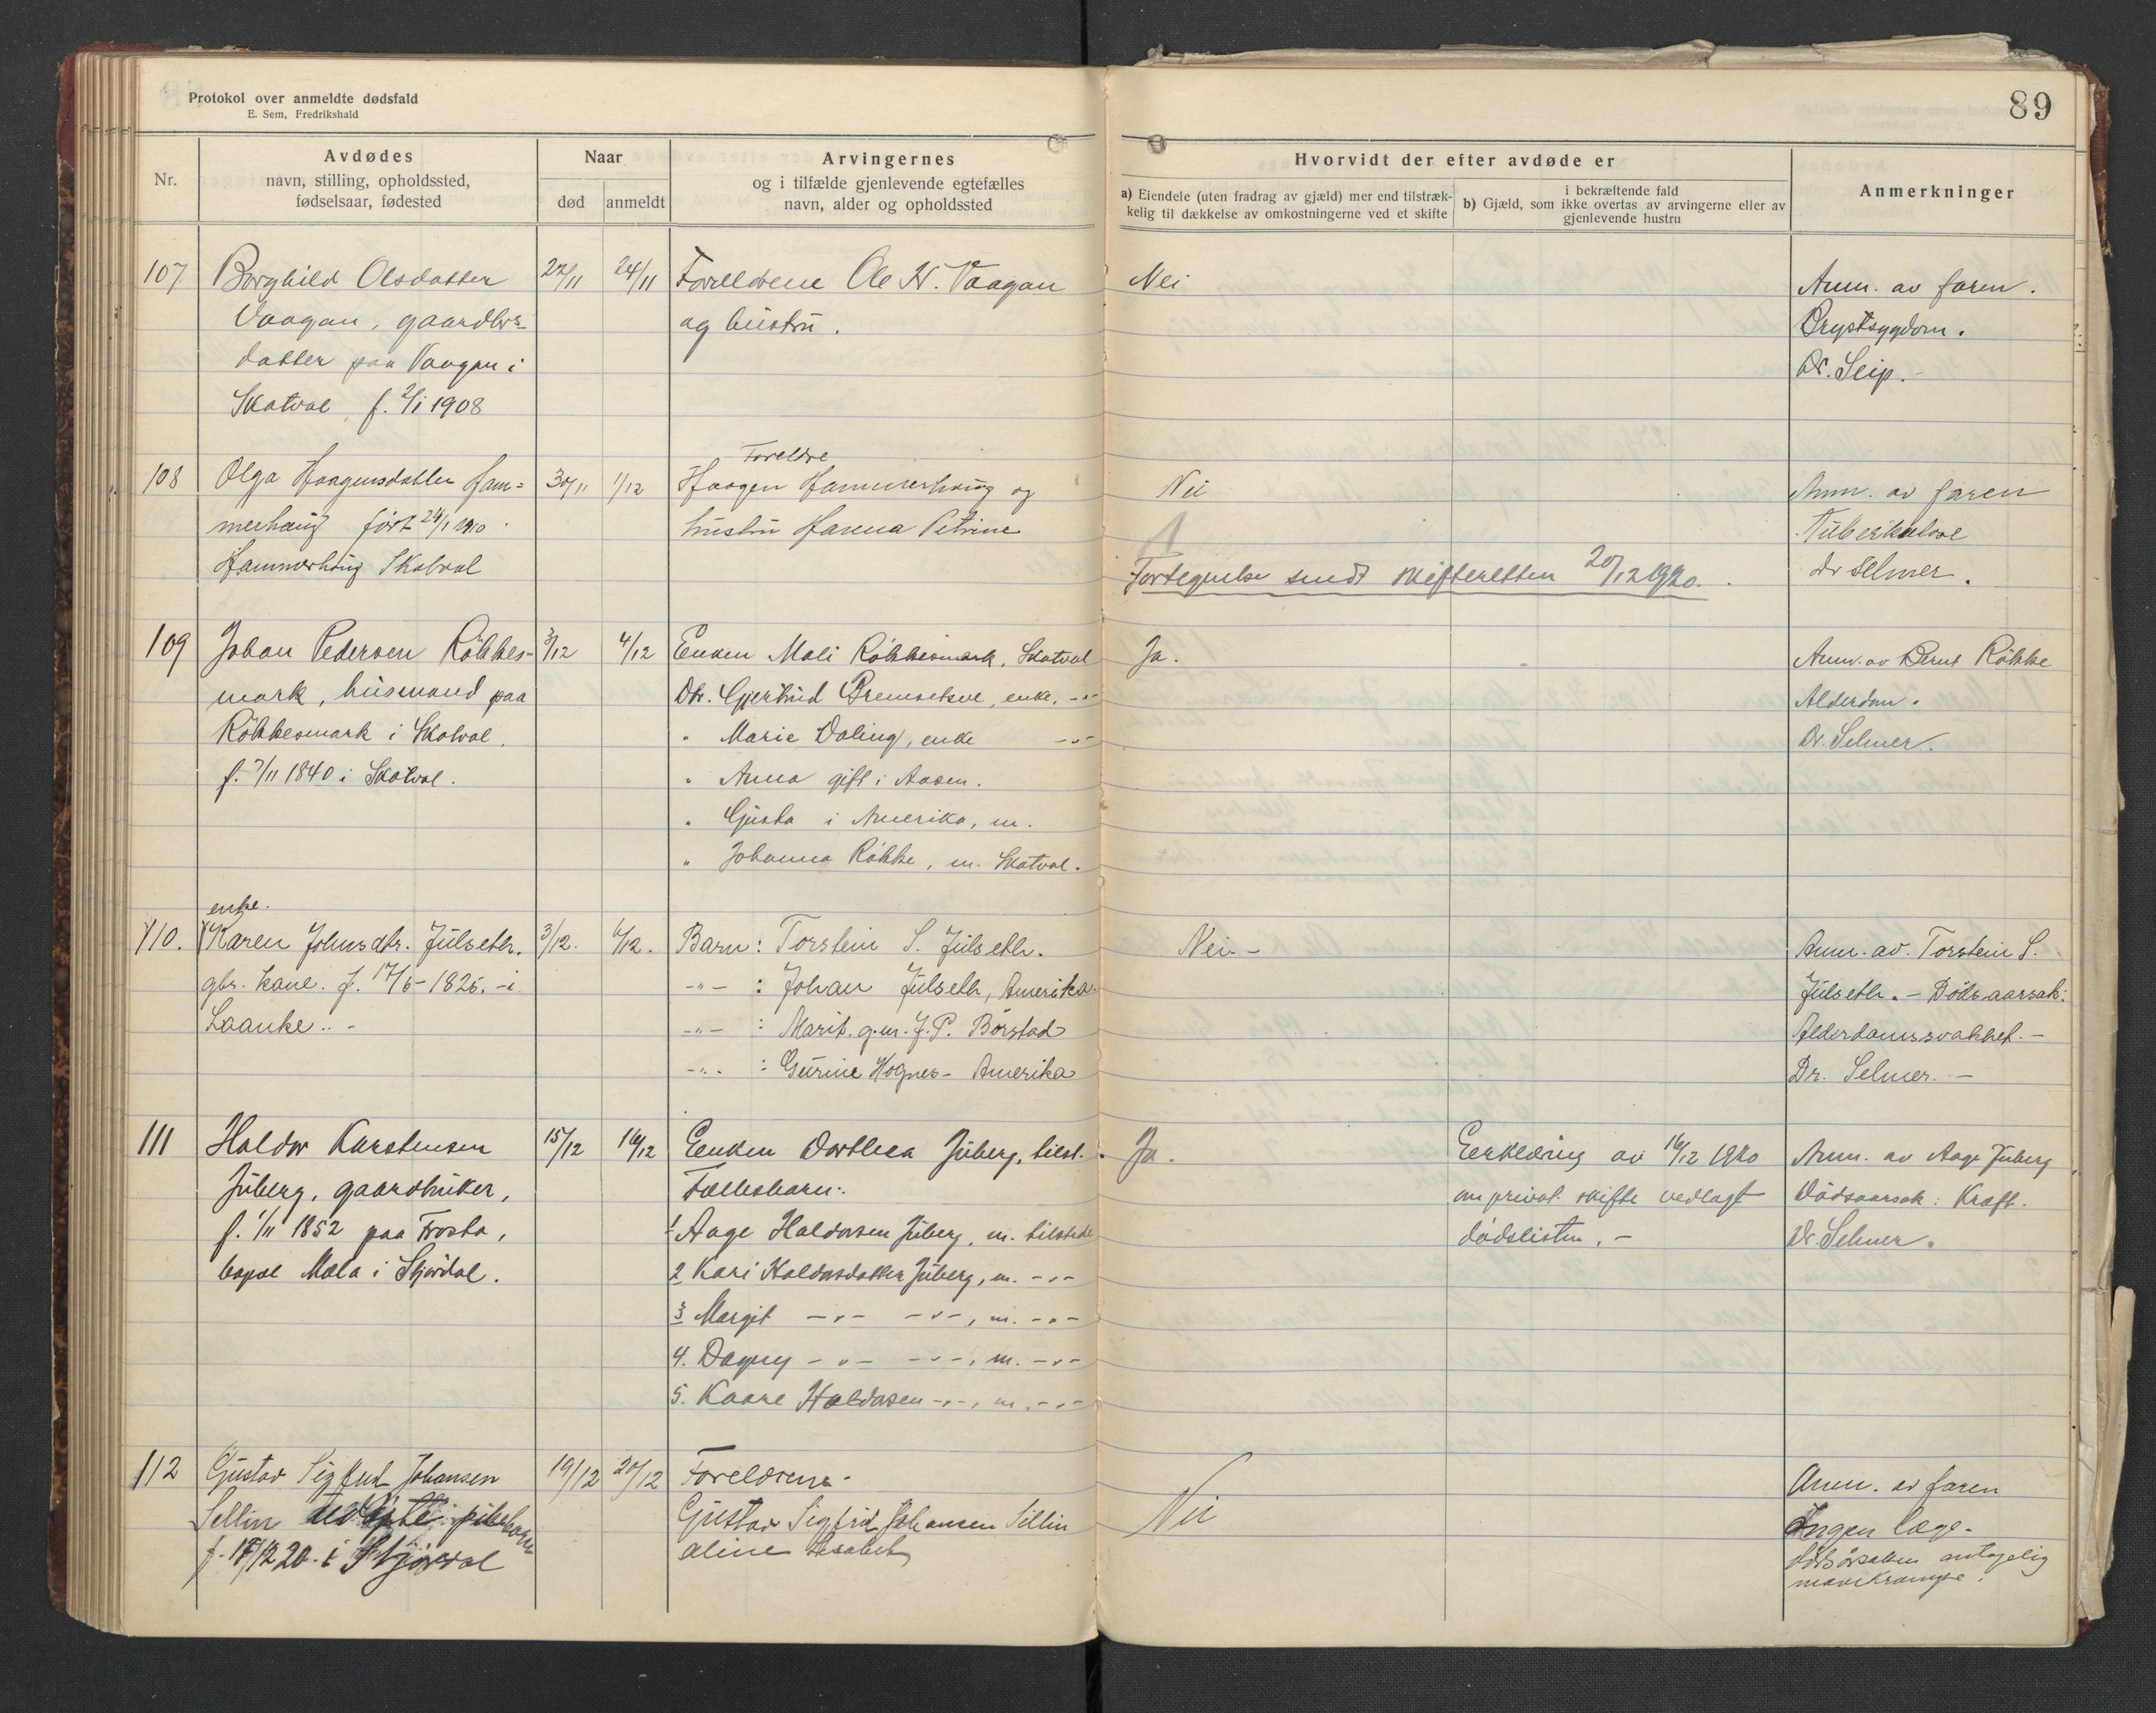 Protokol over anmeldte dødsfald
E. Sem, Fredrikshald
89
Nr.
Avdødes
navn, stilling, opholdssted,
fødselsaar, fødested
Naar
død
anmeldt
Arvingernes
og i tilfælde gjenlevende egtefælles
navn, alder og opholdssted
Hvorvidt der efter avdøde er
a) Eiendele (uten fradrag av gjæld) mer end tilstræk-
kelig til dækkelse av omkostningerne ved et skifte
i bekræftende fald
b) Gjæld, som ikke overtas av arvingerne eller av
gjenlevende hustru
Anmerkninger
107
Borghild Olsdatter
Vaagan, gaardbr=
datter paa Vaagan i
Skatval, f. 2/1 1908
22/11
24/11
Forældrene Ole H. Vaagan
og hustru.
Nei
Anm. av faren.
Brystsygdom.
Dr. Seip.
108
Olga Haagensdatter Ham=
merhaug født 24/1 1910
Hammerhaug Skatval
30/11
1/12
Foreldre
Haagen Hammerhaug og
hustru Hanna Petrine
Nei
Fortegnelse sendt skifteretten 20/12 1920.
Anm. av faren
Tuberkulose
dr Selmer.
109
Johan Pedersen Røkkes-
mark, husmand paa
Røkkesmark i Skatval,
f. 7/11 1840 i Skatval.
3/12
4/12
Enken Mali Røkkesmark, Skatval
Dtr. Gjertrud Bremsetsve, enke, -"-
" Marie Valing, enke -"-
" Anna gift i Aasen.
" Gusta i Amerika, m.
" Johanna Røkke, m. Skatval.
Ja.
Anm. av Bernt Røkke
Alderdom.
Dr. Selmer.
110.
enke.
Karen Johnsdtr. Julseth.
gbr. kone. f. 17/6-1825. - i
Laanke.. -
3/12.
6/12.
Barn: Torstein S. Julseth.
-"- : Johan Julseth, Amerika.
-"- : Marit. g.m. J. P. Børstad
-"- : Gurine Hognes - Amerika
Nei. -
Anm. av. Torstein S.
Julseth. - Dødsaarsak:
Alderdomssvakhet. -
Dr. Selmer. -
111
Haldor Karstensen
Juberg, gaardbruker,
f. 1/11 1852 paa Frosta,
bopæl Mæla i Stjørdal.
15/12
16/12
Enken Dorthea Juberg, tilst.
Fællesbarn:
1 Aage Haldorsen Juberg, m. tilstede
2 Kari Haldorsdatter Juberg, m. -"-
3 Margit -"- -"-, m. -"-
4. Dagny -"- -"-, m. -"-
5. Kaare Haldorsen -"-, m. -"-
Ja.
Erklæring av 16/12 1920
om privat skifte vedlagt
dødslisten. -
Anm. av Aage Juberg
Dødsaarsak: Kræft.
Dr. Selmer.
112
Gustav Sigfrid Johansen
Sellin
f. 17/12 20. i Stjørdal
19/12
20/12
Foreldrene
Gustav Sigfrid Johansen Sellin
Aline Elisabet
Nei
Anm. av faren
Ingen læge.
Dødsårsaken antagelig
mavekrampe.